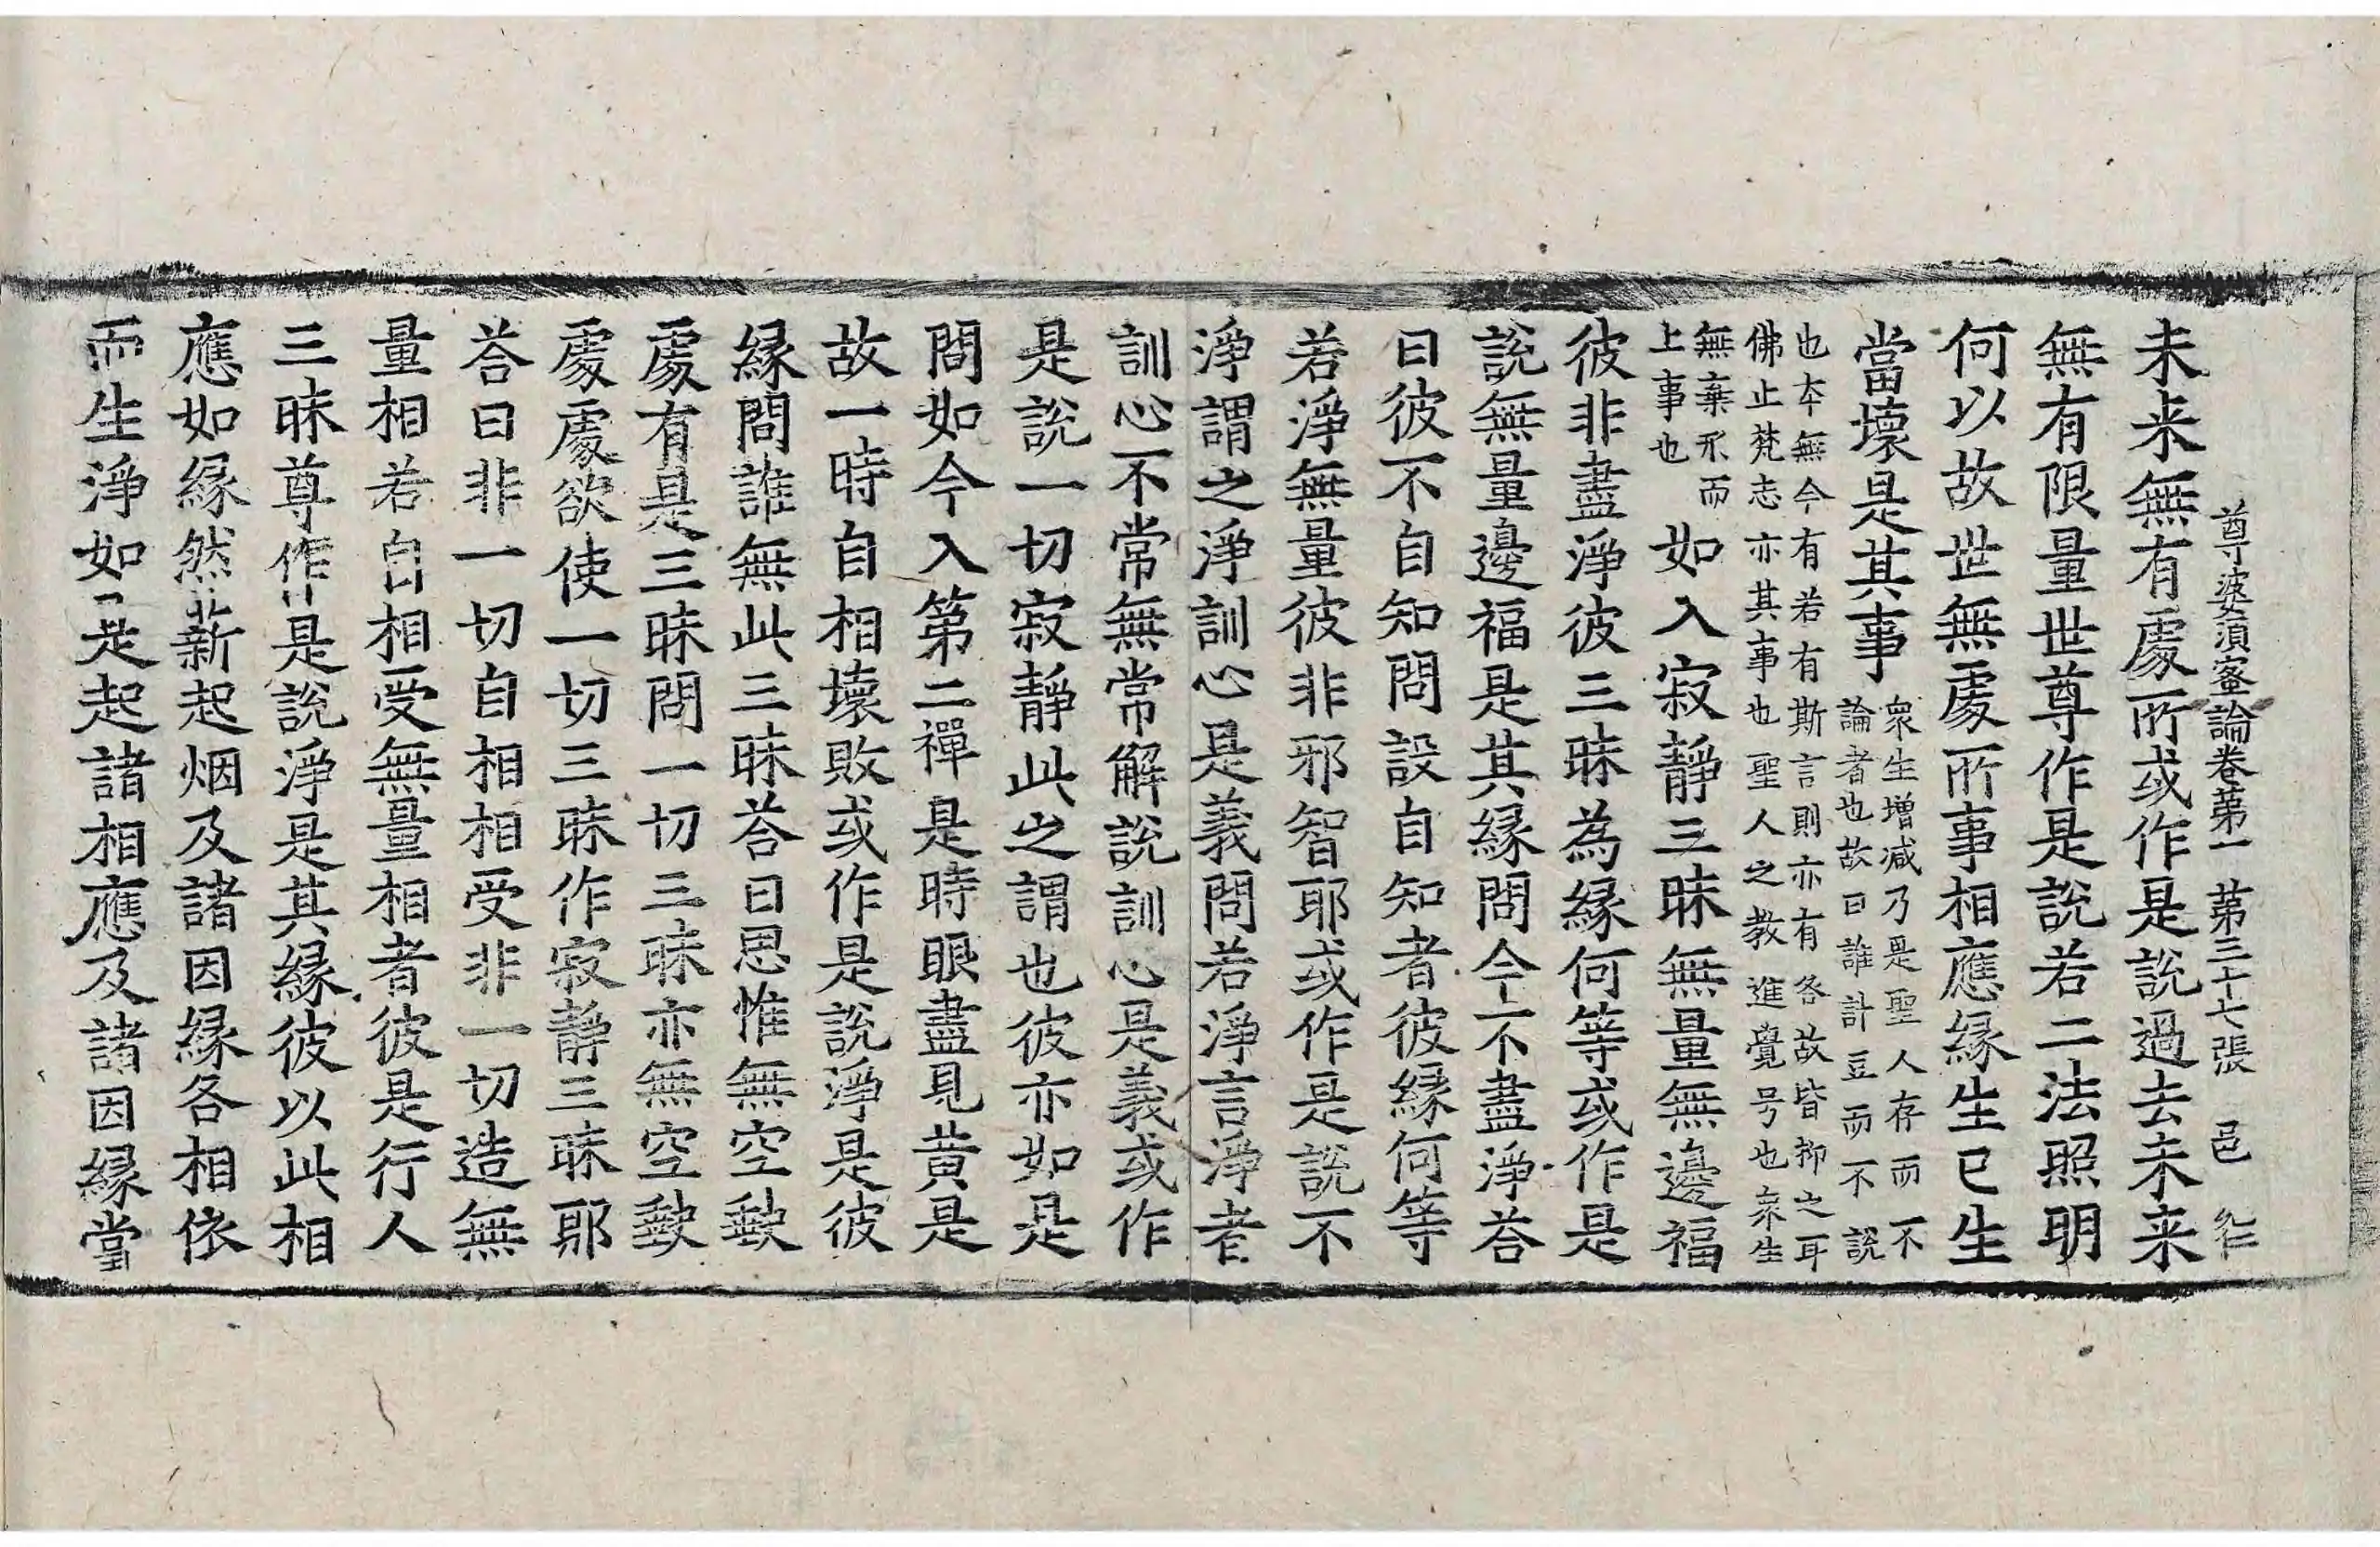 尊婆須蜜論卷苐一 苐三十七張 邑
未来無有處所或作是說過去未来
無有限量世尊作是說若二法照明
何以故世無處所事相應緣生已生
當壞是其事衆生增減乃是聖人存而不
論者也故曰誰計豆而不說
也本無今有若有斯言則亦有各故皆抑之耳
佛止梵志亦其事也聖人之教進覺号也衆生
無棄永而
上事也
如入寂靜三昧無量無邊福
彼非盡淨彼三昧為緣何等或作是
說無量邊福是其緣問今不盡淨荅
曰彼不自知問設自知者彼緣何等
若淨無量彼非邪智耶或作是說不
淨謂之淨訓心是義問若淨言淨者
訓心不常無常解說訓心是義或作
是說一切寂靜此之謂也彼亦如是
問如今入第二禪是時眼盡見黄是
故一時自相壞敗或作是說淨是彼
緣問誰無此三昧荅曰思惟無空缺
處有是三昧問一切三昧亦無空缺
處處欲使一切三昧作寂靜三昧耶
荅曰非一切自相相受非一切造無
量相若自相受無量相者彼是行人
三昧尊作是說淨是其緣彼以此相
應如緣然薪起烟及諸因緣各相依
而生淨如是起諸相應及諸因緣當